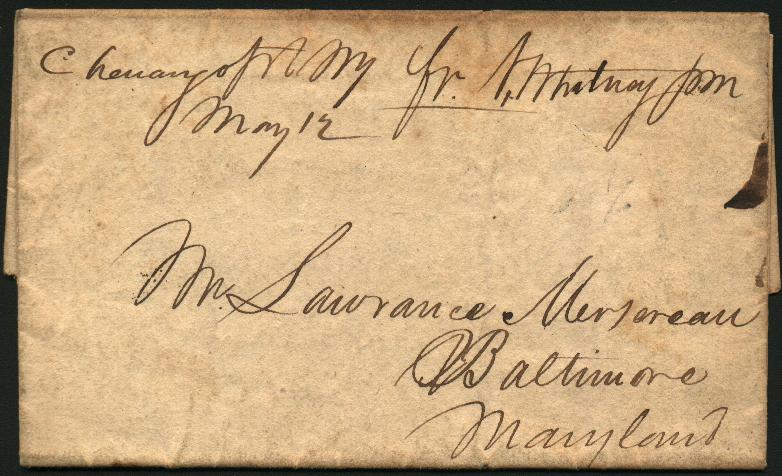 Chenango Pt NY fr. V, Whitney pm
May 12
Mr. Lawrance Mersereau
Baltimore
Maryland